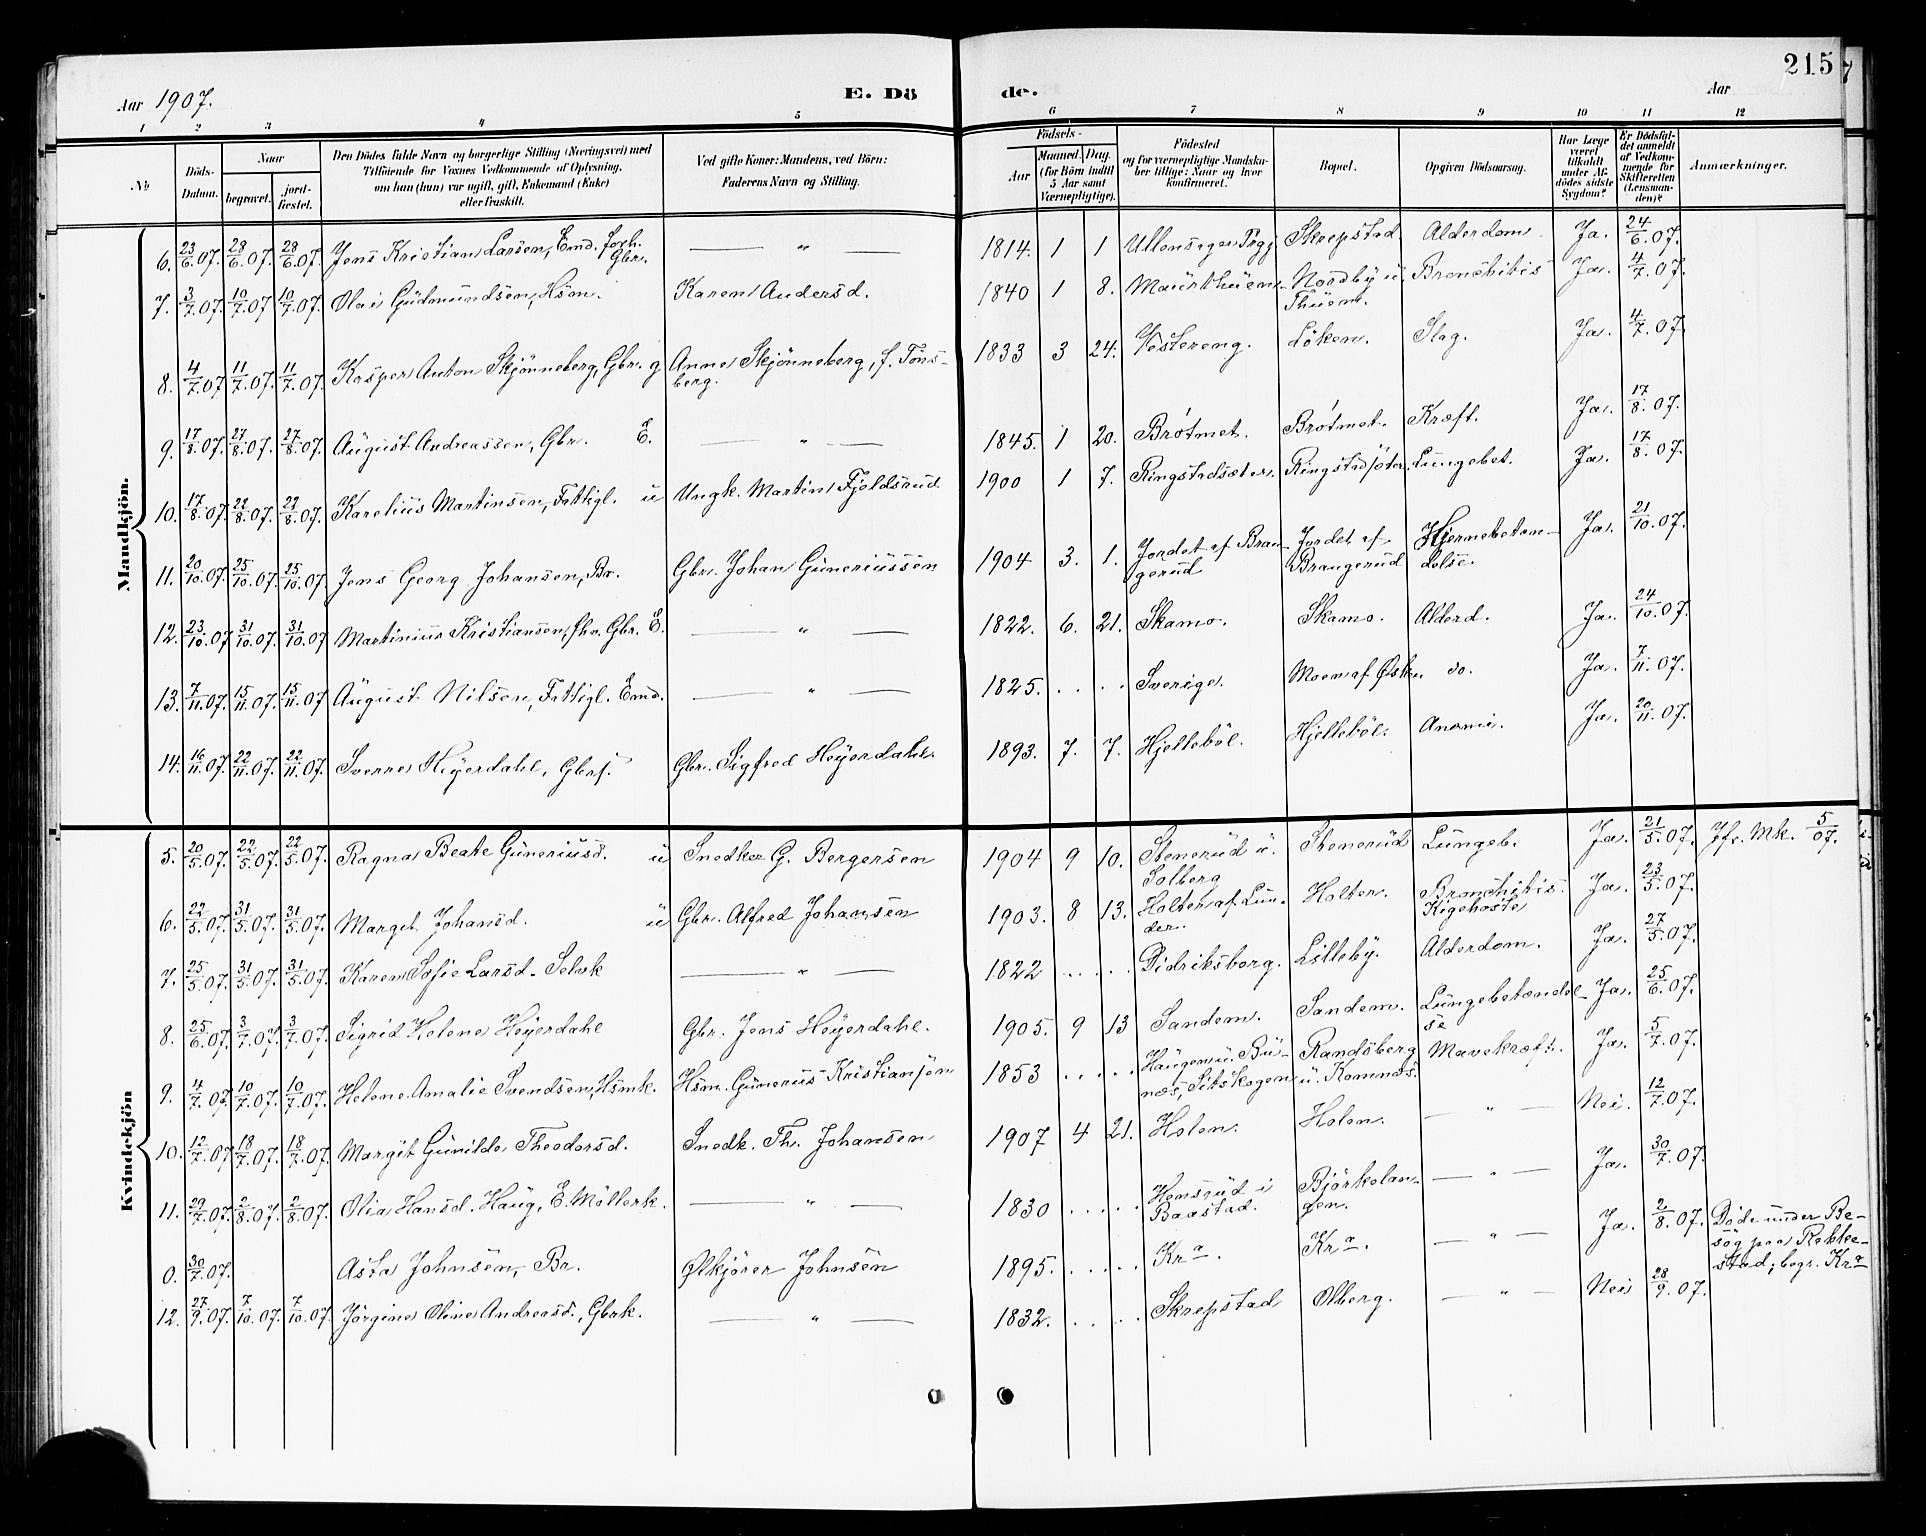 215
Aar 1907.
E. Dö
de.
Aar
1 2 3 4 5 6 7 8 9 10 11 12
№
Döds-Datum.
Naar
begravet.
jord-fæstet.
Den Dödes fulde Navn og borgerlige Stilling (Næringsvei) med
Tilföiende for Voxnes Vedkommende af Oplysning,
om han (hun) var ugift, gift, Enkemand (Enke)
eller fraskilt.
Ved gifte Koner: Mandens, ved Börn:
Faderens Navn og Stilling.
Födsels-
Aar
Maaned.
Dag.
(for Börn indtil
5 Aar samt
Værnepligtige).
Födested
og for værnepligtige Mandska-
ber tillige: Naar og hvor
konfirmeret.
Bopæl.
Opgiven Dödsaarsag.
Har Læge
været
tilkaldt
under Af-
dödes sidste
Sygdom?
Er Dödsfal-
det anmeldt
af Vedkom-
mende for
Skifteretten
(Lensman-
den)?
Anmærkninger.
Mandkjön.
6. 23/6.07. 28/6.07. 28/6.07. Jens Kristian Larsen, Emd. forh. Gbr. — " — 1814. 1 1 Ullensager Prgj. Skrepstad Alderdom Ja. 24/6.07.
7. 3/7.07. 10/7.07 10/7.07. Olai Gudmundsen, Hsm. Karen Andersd. 1840 1 8. Maurthuen Nordby u. Thuen. Bronchitis Ja. 4/7.07.
8. 4/7.07 11/7.07. 11/7.07. Kasper Anton Skjönneberg, Gbr. g Anne Skjönneberg, f. Töns-
berg. 1833 3 24. Vestereng. Löken. Slag. Ja. 4/7.07
9. 17/8.07. 27/8.07. 27/8.07. August Andreassen, Gbr. E. — " — 1845. 1 20. Brøtmet. Brøtmet. Kræft. Ja. 17/8.07.
10. 17/8.07. 22/8.07. 22/8.07. Karelius Martinsen, Fattigl. u Ungk. Martin Fjeldsrud 1900 1 7. Ringstadsæter. Ringstadsæter. Lungebet. Ja. 17/8.07.
11. 20/10.07. 25/10.07. 25/10.07. Jens Georg Johansen, Br. Gbr. Johan Guneriussen 1904 3. 1. Jordet af Bran-
gerud Jordet af
Brangerud Hjernebeten-
delse. Ja. 21/10.07.
12. 23/10.07. 31/10.07. 31/10.07 Martinius Kristiansen, fhv. Gbr. E. — " — 1822. 6. 21. Skamo. Skamo. Alderd. Ja. 24/10.07.
13. 7/11.07. 15/11.07. 15/11.07 August Nilsen, Fattigl. Emd. — " — 1825. . . . . Sverige. Moen af do. Ja. 7/11.07.
14. 16/11.07. 22/11.07. 22/11.07. Sverre Heyerdahl, Gbrs. Gbr. Sigfred Heyerdahl. 1893. 7. 7. Hjelleböl. Hjelleböl. Anæmi. Ja. 20/11.07.
Kvindekjön
5. 20/5.07. 22/5.07. 22/5.07. Ragna Beate Guneriusd. u Snedker G. Bergersen 1904 9 10. Stenerud u.
Solberg Stenerud Lungeb. Ja. 21/5.07. Jfr. Mk. 5/07.
6. 22/5.07. 31/5.07. 31/5.07. Margit Johansd. u Gbr. Alfred Johansen 1903. 8 13. Holter af Lun-
der. Holter. Bronchitis.
Kigehoste Ja. 23/5.07.
7. 25/5.07. 31/5.07. 31/5.07. Karen Sofie Larsd. Selvk — " — 1822 . . . . Didriksborg. Lilleby. Alderdom. Ja. 27/5.07.
8. 25/6.07. 3/7.07. 3/7.07. Sigrid Helene Heyerdahl Gbr. Jens Heyerdahl. 1905. 9 13 Sandem. Sandem. Lungebetændel-
se Ja. 25/6.07.
9. 4/7.07. 10/7.07. 10/7.07. Helene Amalie Svendsen, Hsmk. Hsm. Gunerius Kristiansen 1853 . . . . . Haugen u. Bu-
næs, Setskogen Randsberg
u. Komnæs. Mavekræft. Ja. 5/7.07.
10. 12/7.07 18/7.07. 18/7.07. Margit Gunilde Theodorsd. Snedk. Th. Johansen 1907 4 21. Holen. Holen. — " — Nei. 12/7.07.
11. 29/7.07. 2/8.07. 2/8.07. Olia Hansd. Haug, E. Möllerk. — " — 1830 . . . . . Hensrud i
Baastad. Björkelan-
gen. — " — Ja. 30/7.07.
0. 30/7.07. Asta Johnsen, Br. Ølkjörer Johnsen 1895. . . . . . Kra. Kra. — " — Ja. 2/8.07. Döde under Be-
søg paa Rekke-
stad; begr. Kra
12. 27/9.07. 7/10.07. 7/10.07. Jörgine Oline Andreasd., Gbrk. — " — 1832. . . . . Skrepstad Olberg. — " — Nei 28/9.07.